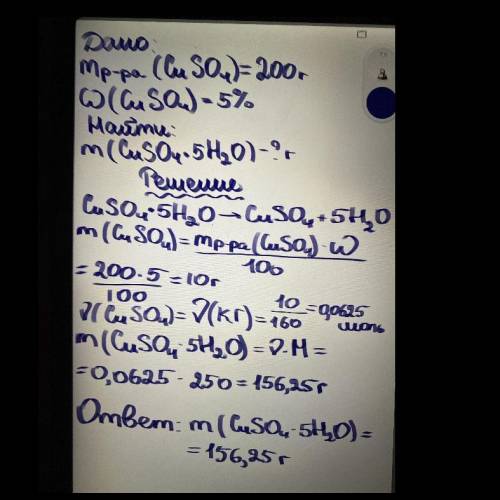 Дано:
mр-ра (CuSO₄)=200г
ω(CuSO₄)=5%
Найти:
m(CuSO₄·5H₂O)-?г
Решение
CuSO₄·5H₂O→CuSO₄+5H₂O
m(CuSO₄)=mр-ра(CuSO₄)·ω/100
=200·5/100=10г
ν(CuSO₄)=ν(кг)=10/160=0,0625 моль
m(CuSO₄·5H₂O)=ν·M=
=0,0625·250=156,25г
Ответ: m(CuSO₄·5H₂O)=
=156,25г